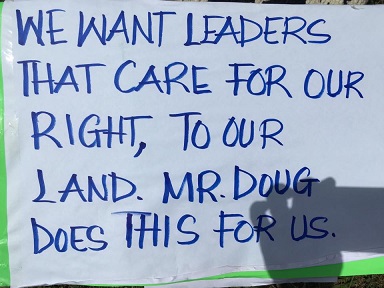 WE WANT LEADERS
THAT CARE FOR OUR
RIGHT, TO OUR
LAND. MR. DOUG
DOES THIS FOR US.